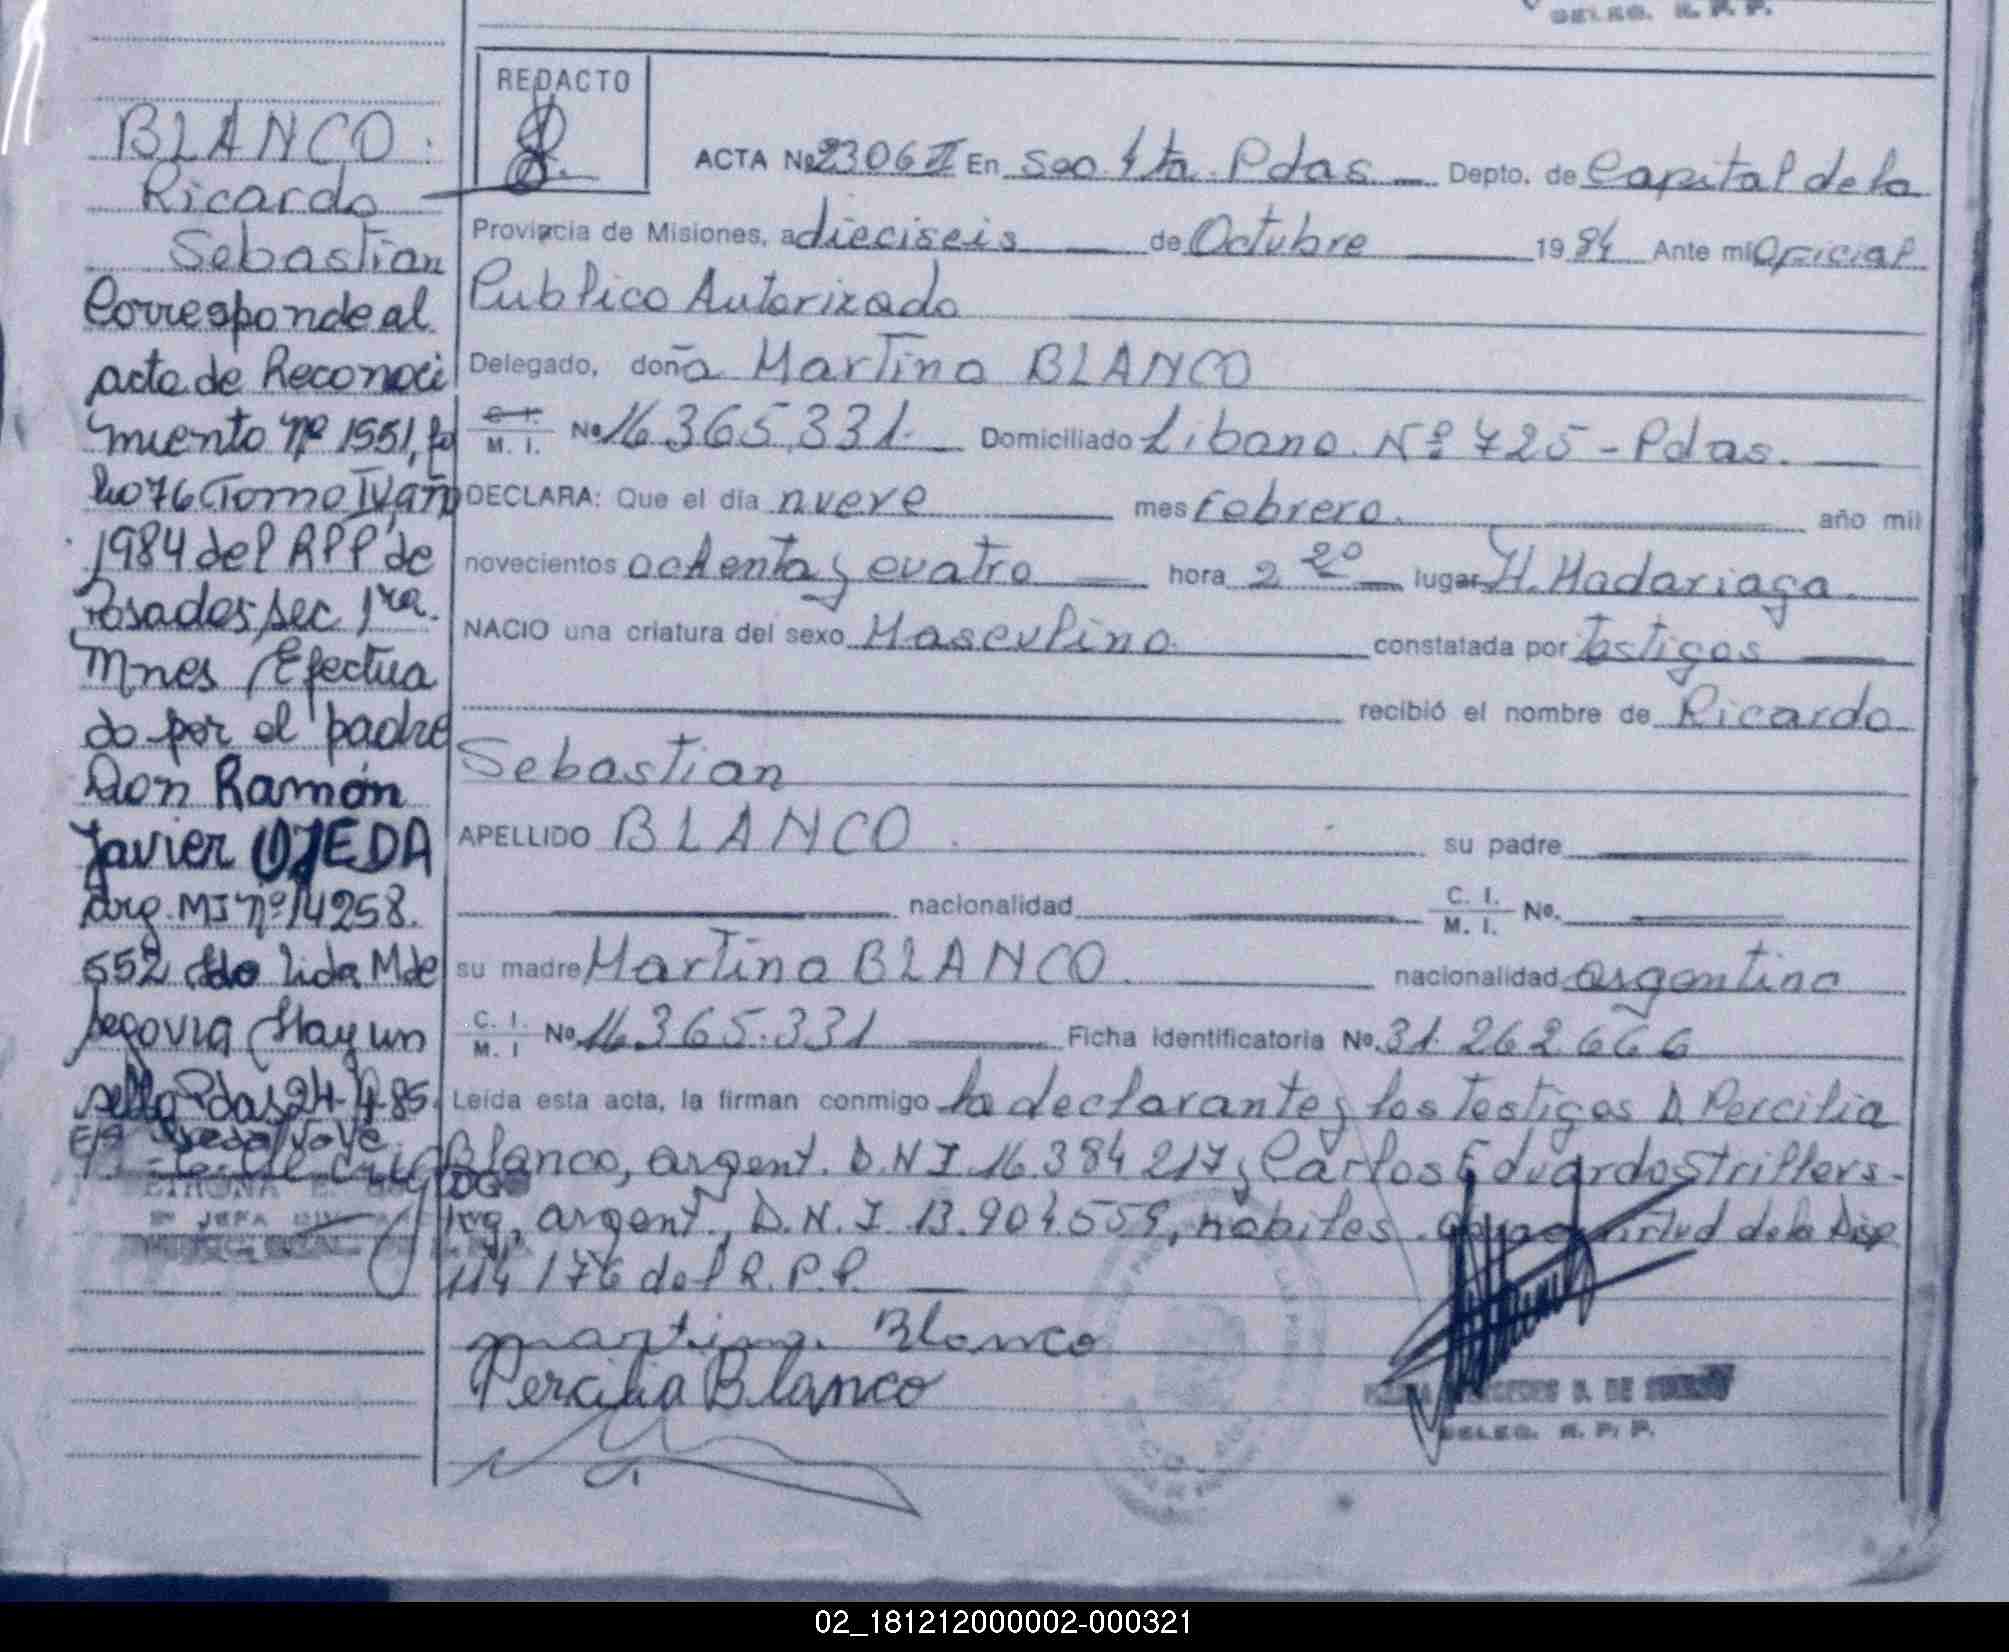 DELEG. R. P. P.
REDACTO
ACTA No 2306 II En Sec. 1ta. Pdas. Depto. de Capital de la
Provincia de Misiones, a dieciseis de Octubre 1984 Ante mi Oficial
Publico Autorizado
Delegado, doña Martina BLANCO
C. I. M. I. No 16.365.331. Domiciliado Libano. Nº 725 - Pdas.
DECLARA: Que el día nueve mes Febrero. año mil
novecientos ochenta y cuatro hora 2 20 lugar H. Madariaga.
NACIO una criatura del sexo Masculino. constatada por Testigos
recibió el nombre de Ricardo
Sebastian
APELLIDO BLANCO. su padre
nacionalidad C. I. M. I. No.
su madre Martina BLANCO. nacionalidad argentina
C. I. M. I No. 16.365.331 Ficha identificatoria No. 31.262.666
Leída esta acta, la firman conmigo la declarante y los Testigos D. Percilia
Blanco, argent. D.N.I. 16.384.217 y Carlos Eduardo
argent., D.N.I. 13.904.559, habiles. virtud de la Disp
114/76 del R.P.P.
martina. Blanco
Percilia Blanco
DE
DELEG. R. P. P.
BLANCO.
Ricardo
Sebastian
Corresponde al
acta de Reconoci
miento nº 1551, fo
lio 76 Tomo IV, añ
1984 del RPP de
Posadas, sec. 1ra.
Mnes / Efectua
do por el padre
Don Ramón
Javier OJEDA
Arg. MI nº 14258.
552 fdo lida M de
Segovia (Hay un
sello Pdas 24-4-85.
JEFA
02_181212000002-000321